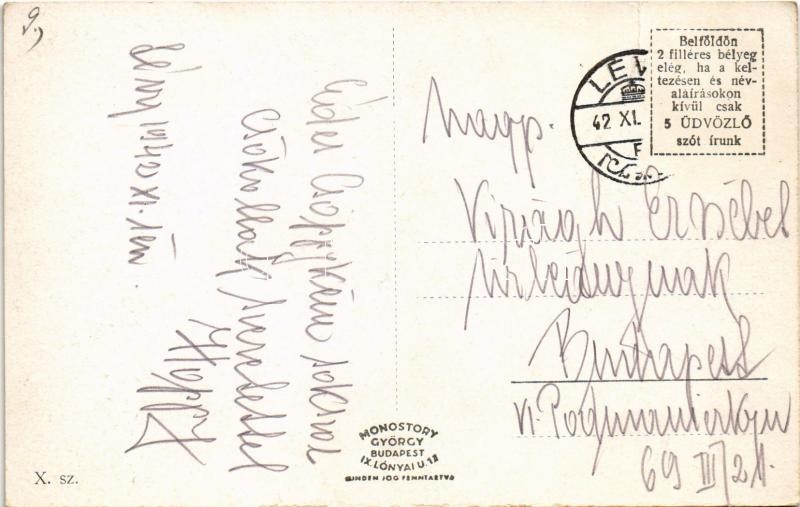 9.)
Édes Csöpikém sokszor
csókollak szeretettel
1942 XI.
Belföldön
2 filléres bélyeg
elég, ha a kel-
tezésen és név-
aláírásokon
kívül csak
5 ÜDVÖZLŐ
szót írunk
LÉV
42 XI.
Nagys.
Virágh Erzsébet
úrleánynak
Budapest
VI. Podmaniczky u
69 III/21.
MONOSTORY
GYÖRGY
BUDAPEST
IX. LÓNYAI U. 18
MINDEN JOG FENNTARTVA
X. sz.